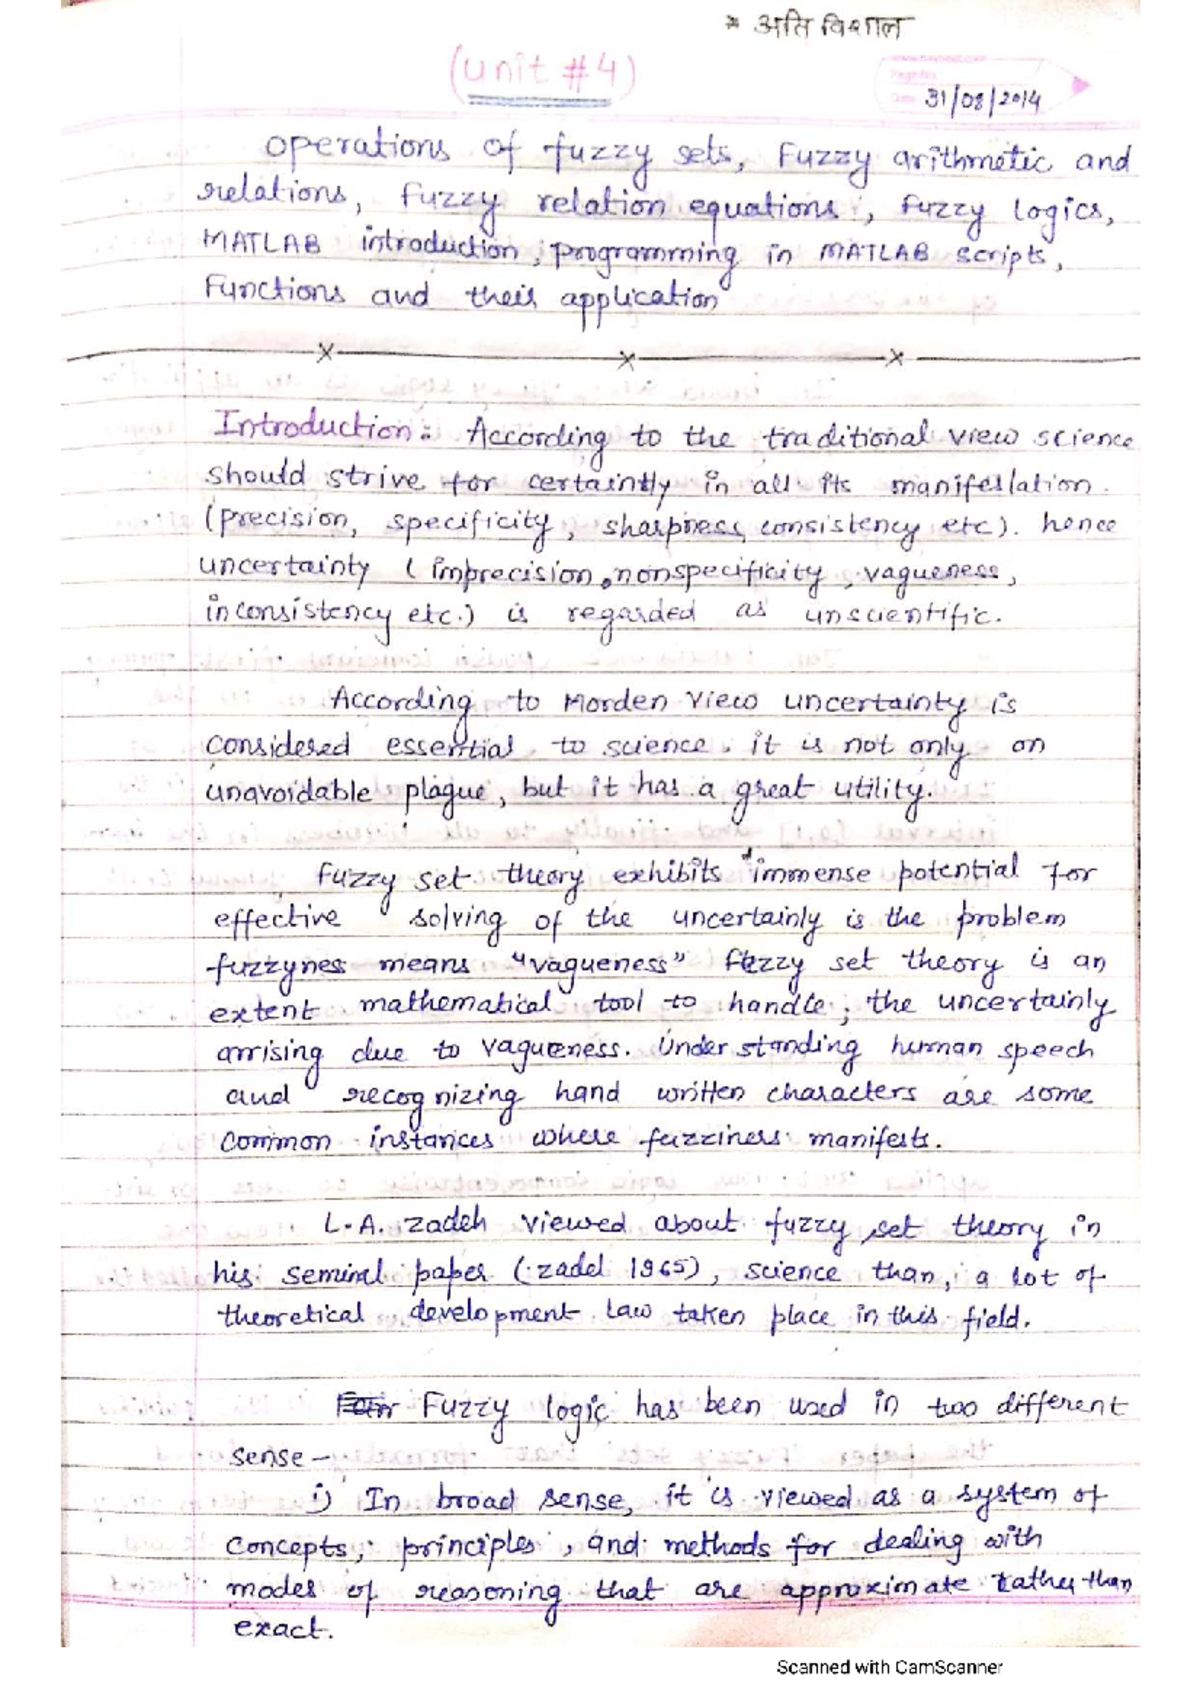 * अति विशाल
(unit #4)
Page No.
Date 31/08/2014
operations of fuzzy sets, Fuzzy arithmetic and
relations, fuzzy relation equations, fuzzy logics,
MATLAB introduction, programming in MATLAB scripts,
Functions and their application
x x x
Introduction: According to the traditional view science
should strive for certaintly in all its manifestation.
(precision, specificity, sharpness, consistency etc). hence
uncertainty (imprecision, nonspecificity, vagueness,
inconsistency etc.) is regarded as unscientific.
According to Morden View uncertainty is
considered essential to science. it is not only on
unavoidable plague, but it has a great utility.
Fuzzy set theory exhibits immense potential for
effective solving of the uncertainly is the problem
fuzzynes means "vagueness" fuzzy set theory is an
extent mathematical tool to handle, the uncertainly
arrising due to vagueness. Understanding human speech
and recognizing hand written characters are some
common instances where fuzziness manifests.
L.A. zadeh viewed about fuzzy set theory in
his seminal paper (zadel 1965), science than, a lot of
theoretical development law taken place in this field.
Fuzzy logic has been used in two different
sense -
i) In broad sense, it is viewed as a system of
concepts, principles, and methods for dealing with
modes of reasoning that are approximate rather than
exact.
Scanned with CamScanner